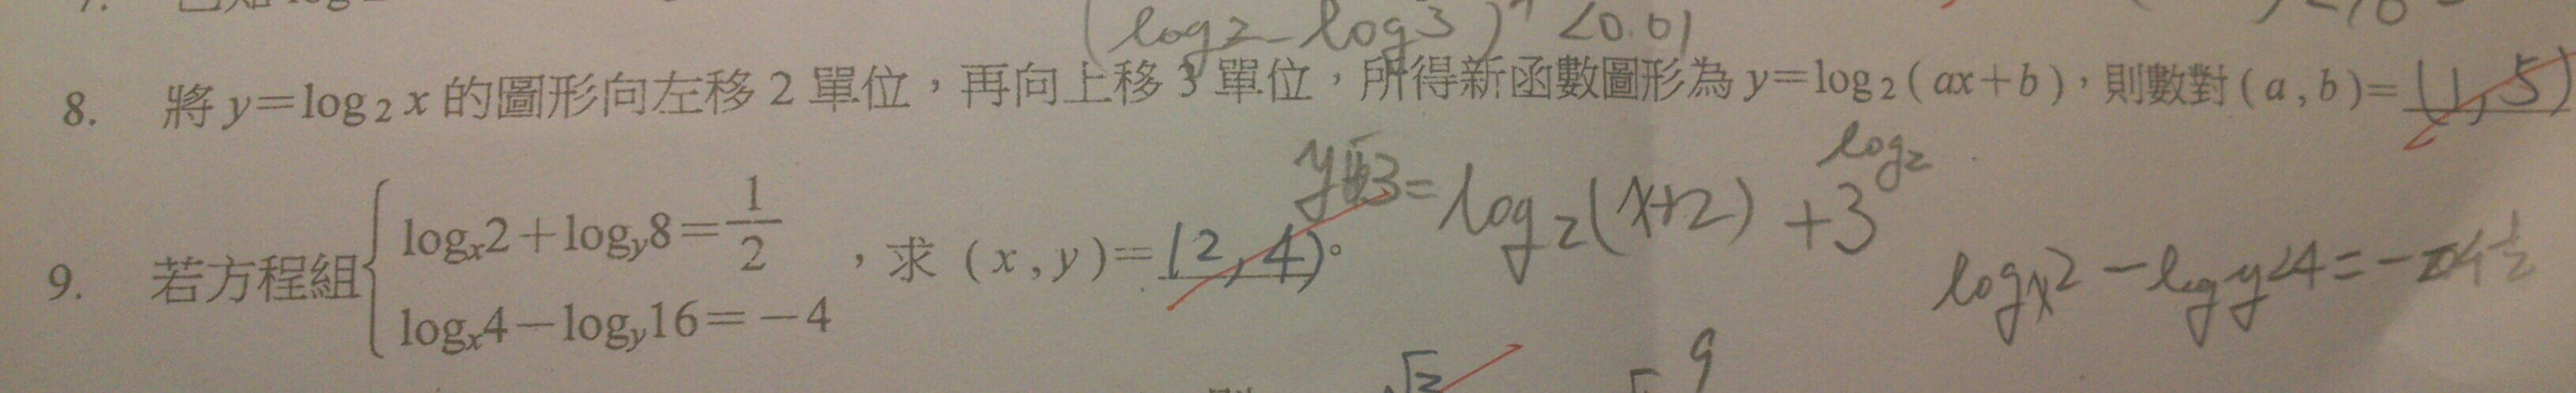 7. 已知 log
(log2-log3) <0.01
8. 將 y=log₂ x 的圖形向左移 2 單位，再向上移 3 單位，所得新函數圖形為 y=log₂(ax+b)，則數對(a,b)=(1,5)
log₂
=log₂(x+2)+3
9. 若方程組 { logₓ2+log_y8=1/2
logₓ4-log_y16=-4
，求 (x,y)=(2,4)。
logₓ2-log_y
√2
9